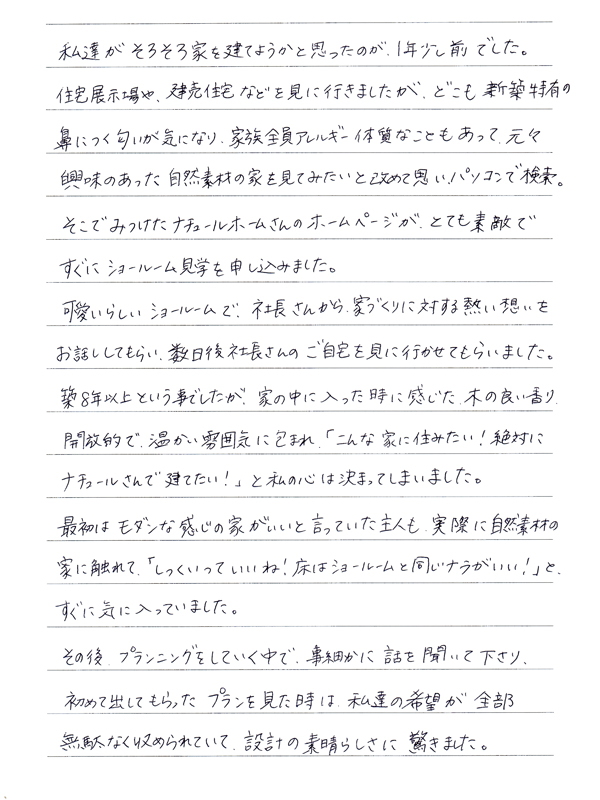 私達が そろそろ家を建てようかと思ったのが、1年少し前でした。
住宅展示場や、建売住宅などを見に行きましたが、どこも 新築特有の
鼻につく匂いが気になり、家族全員アレルギー体質なこともあって、元々
興味のあった自然素材の家を見てみたいと改めて思い、パソコンで検索。
そこでみつけたナチュールホームさんのホームページが、とても素敵で
すぐにショールーム見学を申し込みました。
可愛いらしいショールームで、社長さんから、家づくりに対する熱い想いを
お話ししてもらい、数日後社長さんのご自宅を見に行かせてもらいました。
築8年以上という事でしたが、家の中に入った時に感じた、木の良い香り、
開放的で、温かい雰囲気に包まれ、「こんな家に住みたい！絶対に
ナチュールさんで建てたい！」と私の心は決まってしまいました。
最初はモダンな感じの家がいいと言っていた主人も、実際に自然素材の
家に触れて、「しっくいっていいね！床はショールームと同じナラがいい！」と、
すぐに気に入っていました。
その後、プランニングをしていく中で、事細かに話を聞いて下さり、
初めて出してもらったプランを見た時は、私達の希望が全部
無駄なく収められていて、設計の素晴らしさに驚きました。